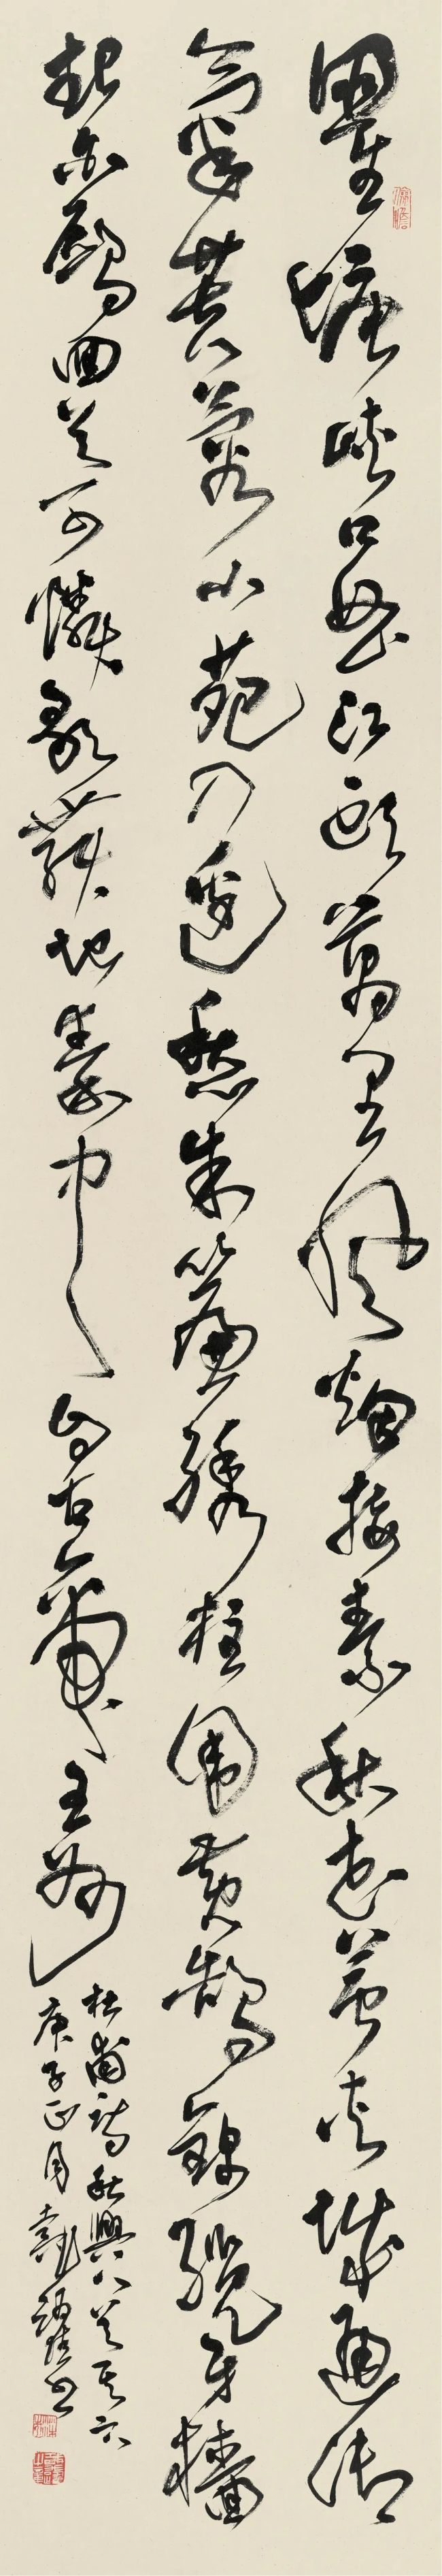 瞿塘峽口曲江頭萬里風烟接素秋花萼夾城通御
氣芙蓉小苑入邊愁朱簾繡柱圍黃鵠錦纜牙檣
起白鷗回首可憐歌舞地秦中自古帝王州
杜甫詩秋興八首其六
庚子正月書